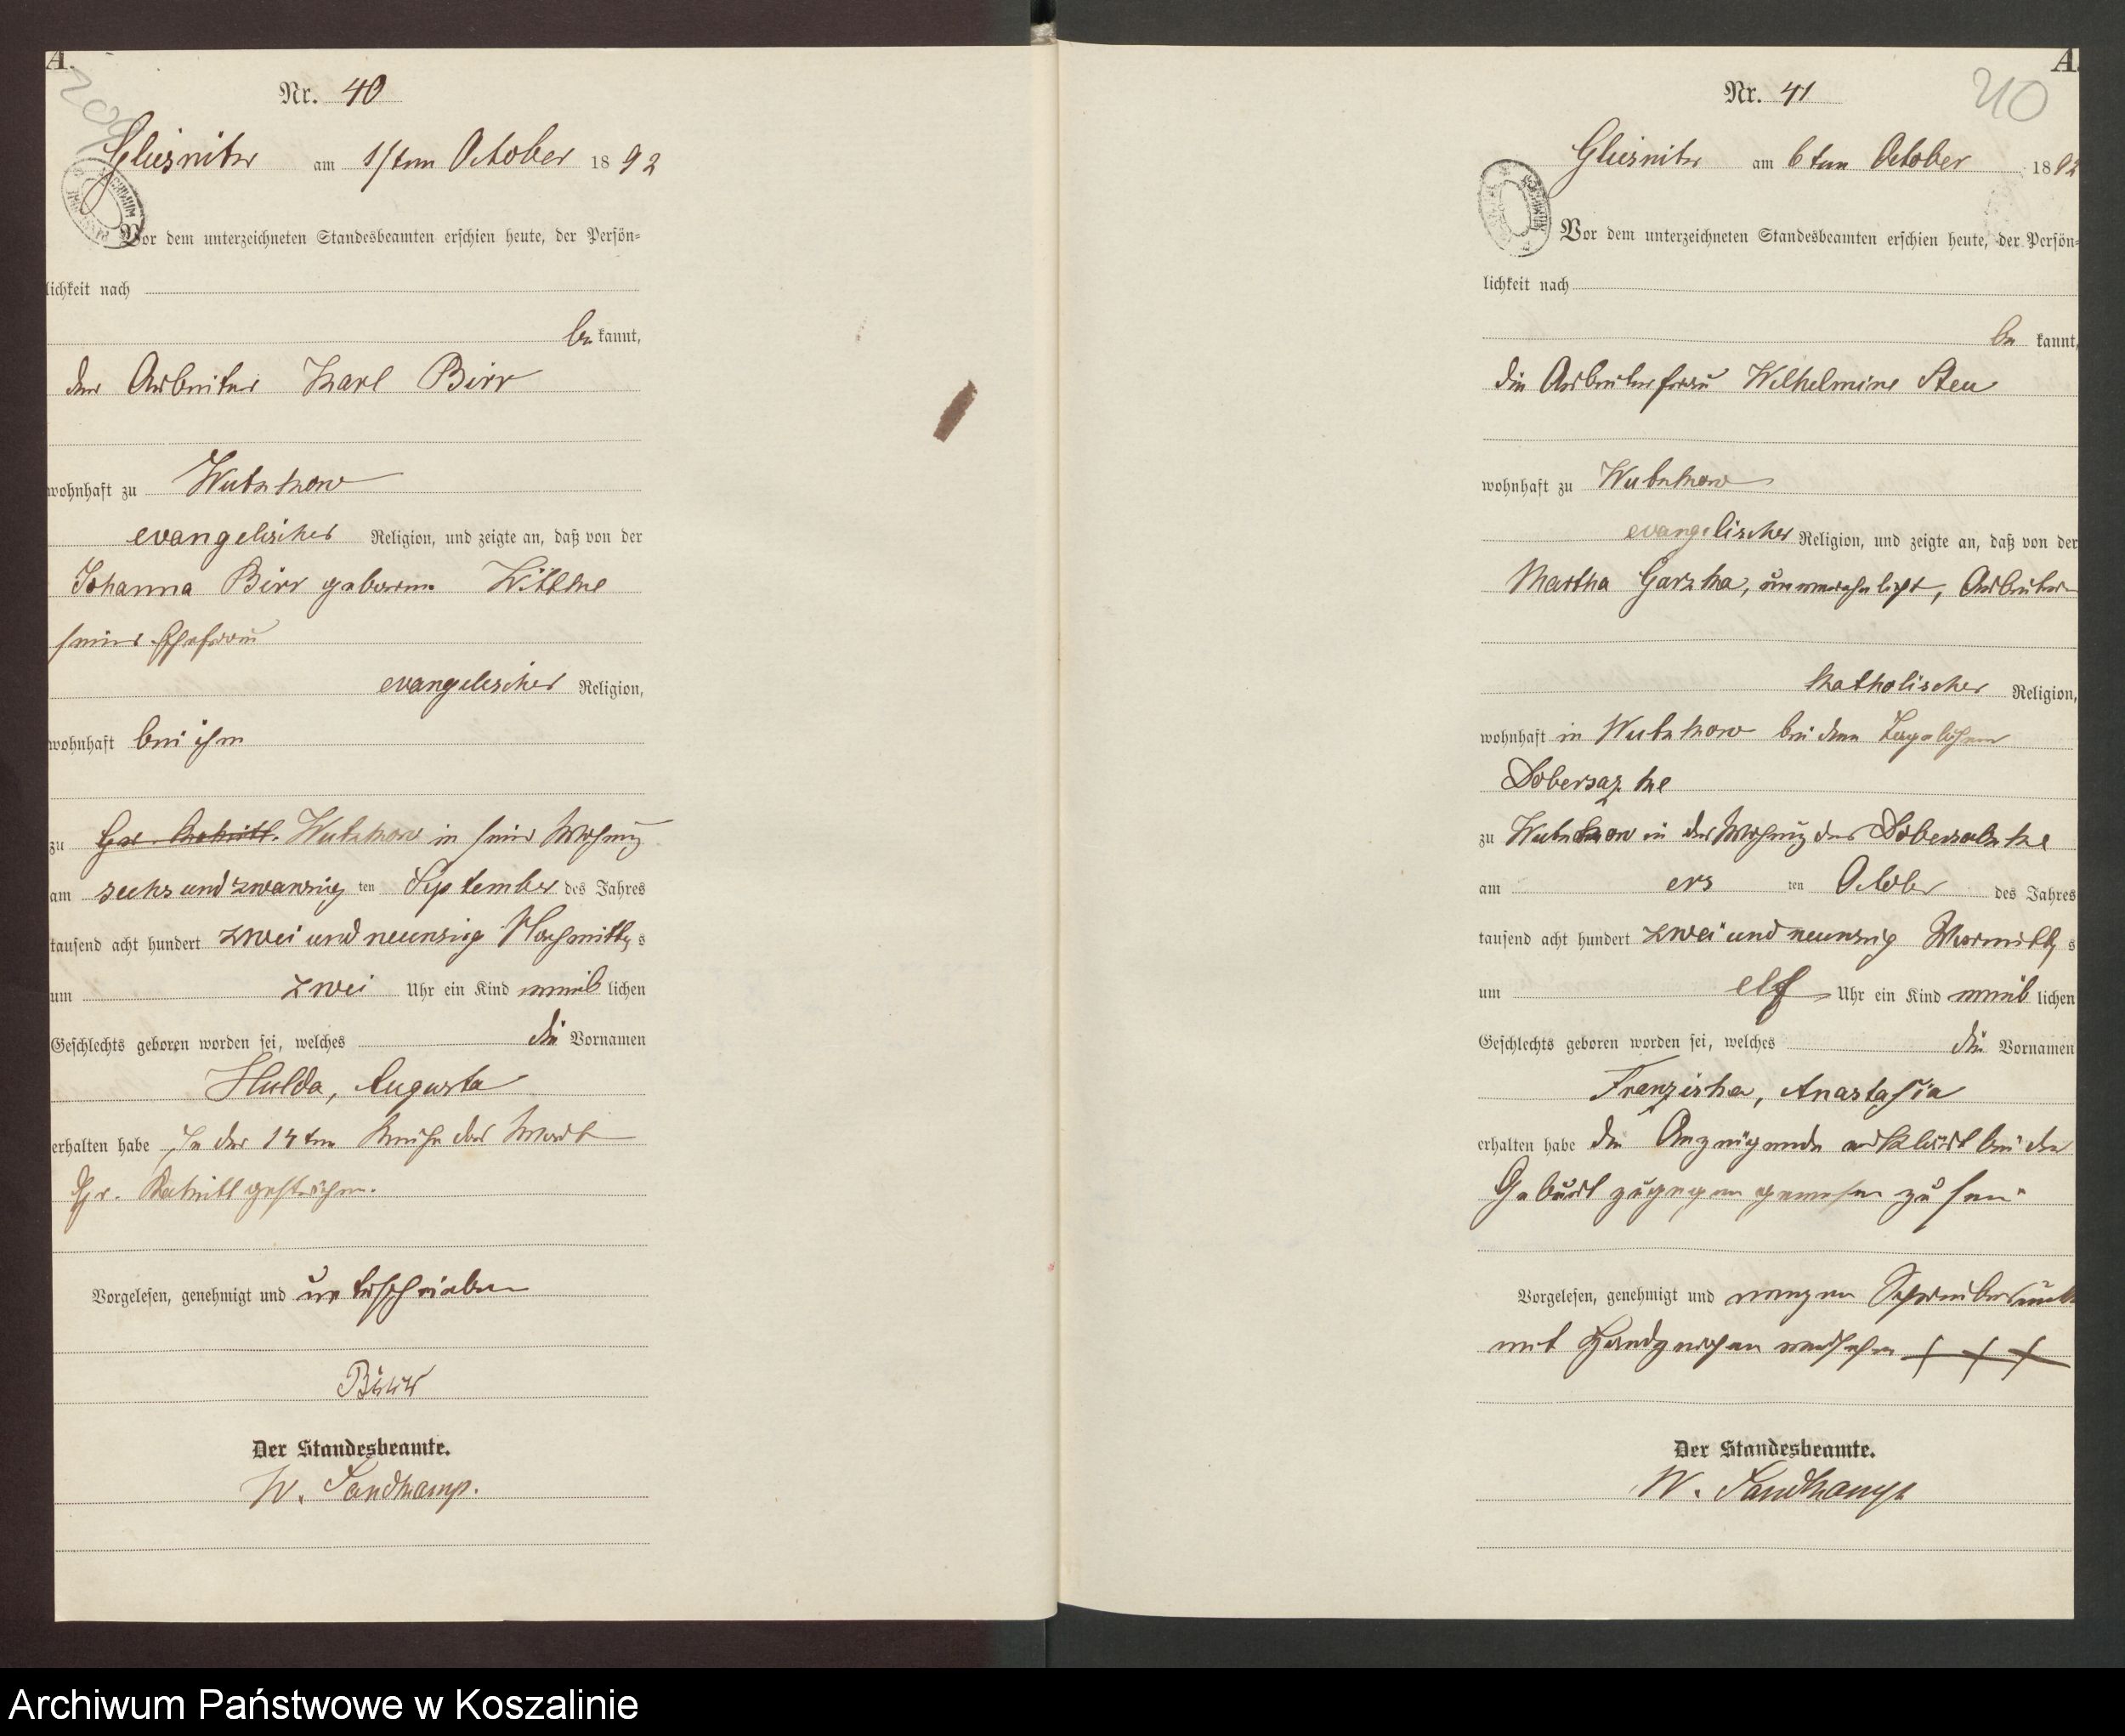 A.
Nr. 40
Gliesnitz am 1ten October 1892
Vor dem unterzeichneten Standesbeamten erschien heute, der Persön-
lichkeit nach
be kannt,
der Arbeiter Karl Birr
wohnhaft zu Wutzkow
evangelischer Religion, und zeigte an, daß von der
Johanna Birr geborene
seiner Ehefrau
evangelischer Religion,
wohnhaft bei ihm
zu Gr. Wutzkow in seiner Wohnung
am sechs und zwanzig ten September des Jahres
tausend acht hundert zwei und neunzig Nachmittags
um zwei Uhr ein Kind weiblichen
Geschlechts geboren worden sei, welches die Vornamen
Hulda, Augusta
erhalten habe In der 14ten Reihe das Wort
Gr. gestrichen.
Vorgelesen, genehmigt und unterschrieben
Birr
Der Standesbeamte.
W. Sandkamp.
A.
210
Nr. 41
Gliesnitz am 6ten October 1892
Vor dem unterzeichneten Standesbeamten erschien heute, der Persön-
lichkeit nach
be kannt,
die Arbeiterfrau Wilhelmine
wohnhaft zu Wutzkow
evangelischer Religion, und zeigte an, daß von der
Martha Garzka, unverehelicht, Arbeiter
katholischer Religion,
wohnhaft in Wutzkow bei dem Tagelöhner
Dobersazke
zu Wutzkow in der Wohnung des
am ers ten October des Jahres
tausend acht hundert zwei und neunzig Vormittags
um elf Uhr ein Kind weiblichen
Geschlechts geboren worden sei, welches die Vornamen
Franziska, Anastasia
erhalten habe die Anzeigende erklärt bei der
Geburt zugegen gewesen zu sein.
Vorgelesen, genehmigt und wegen
mit Handzeichen versehen + + +
Der Standesbeamte.
W. Sandkamp
Archiwum Państwowe w Koszalinie